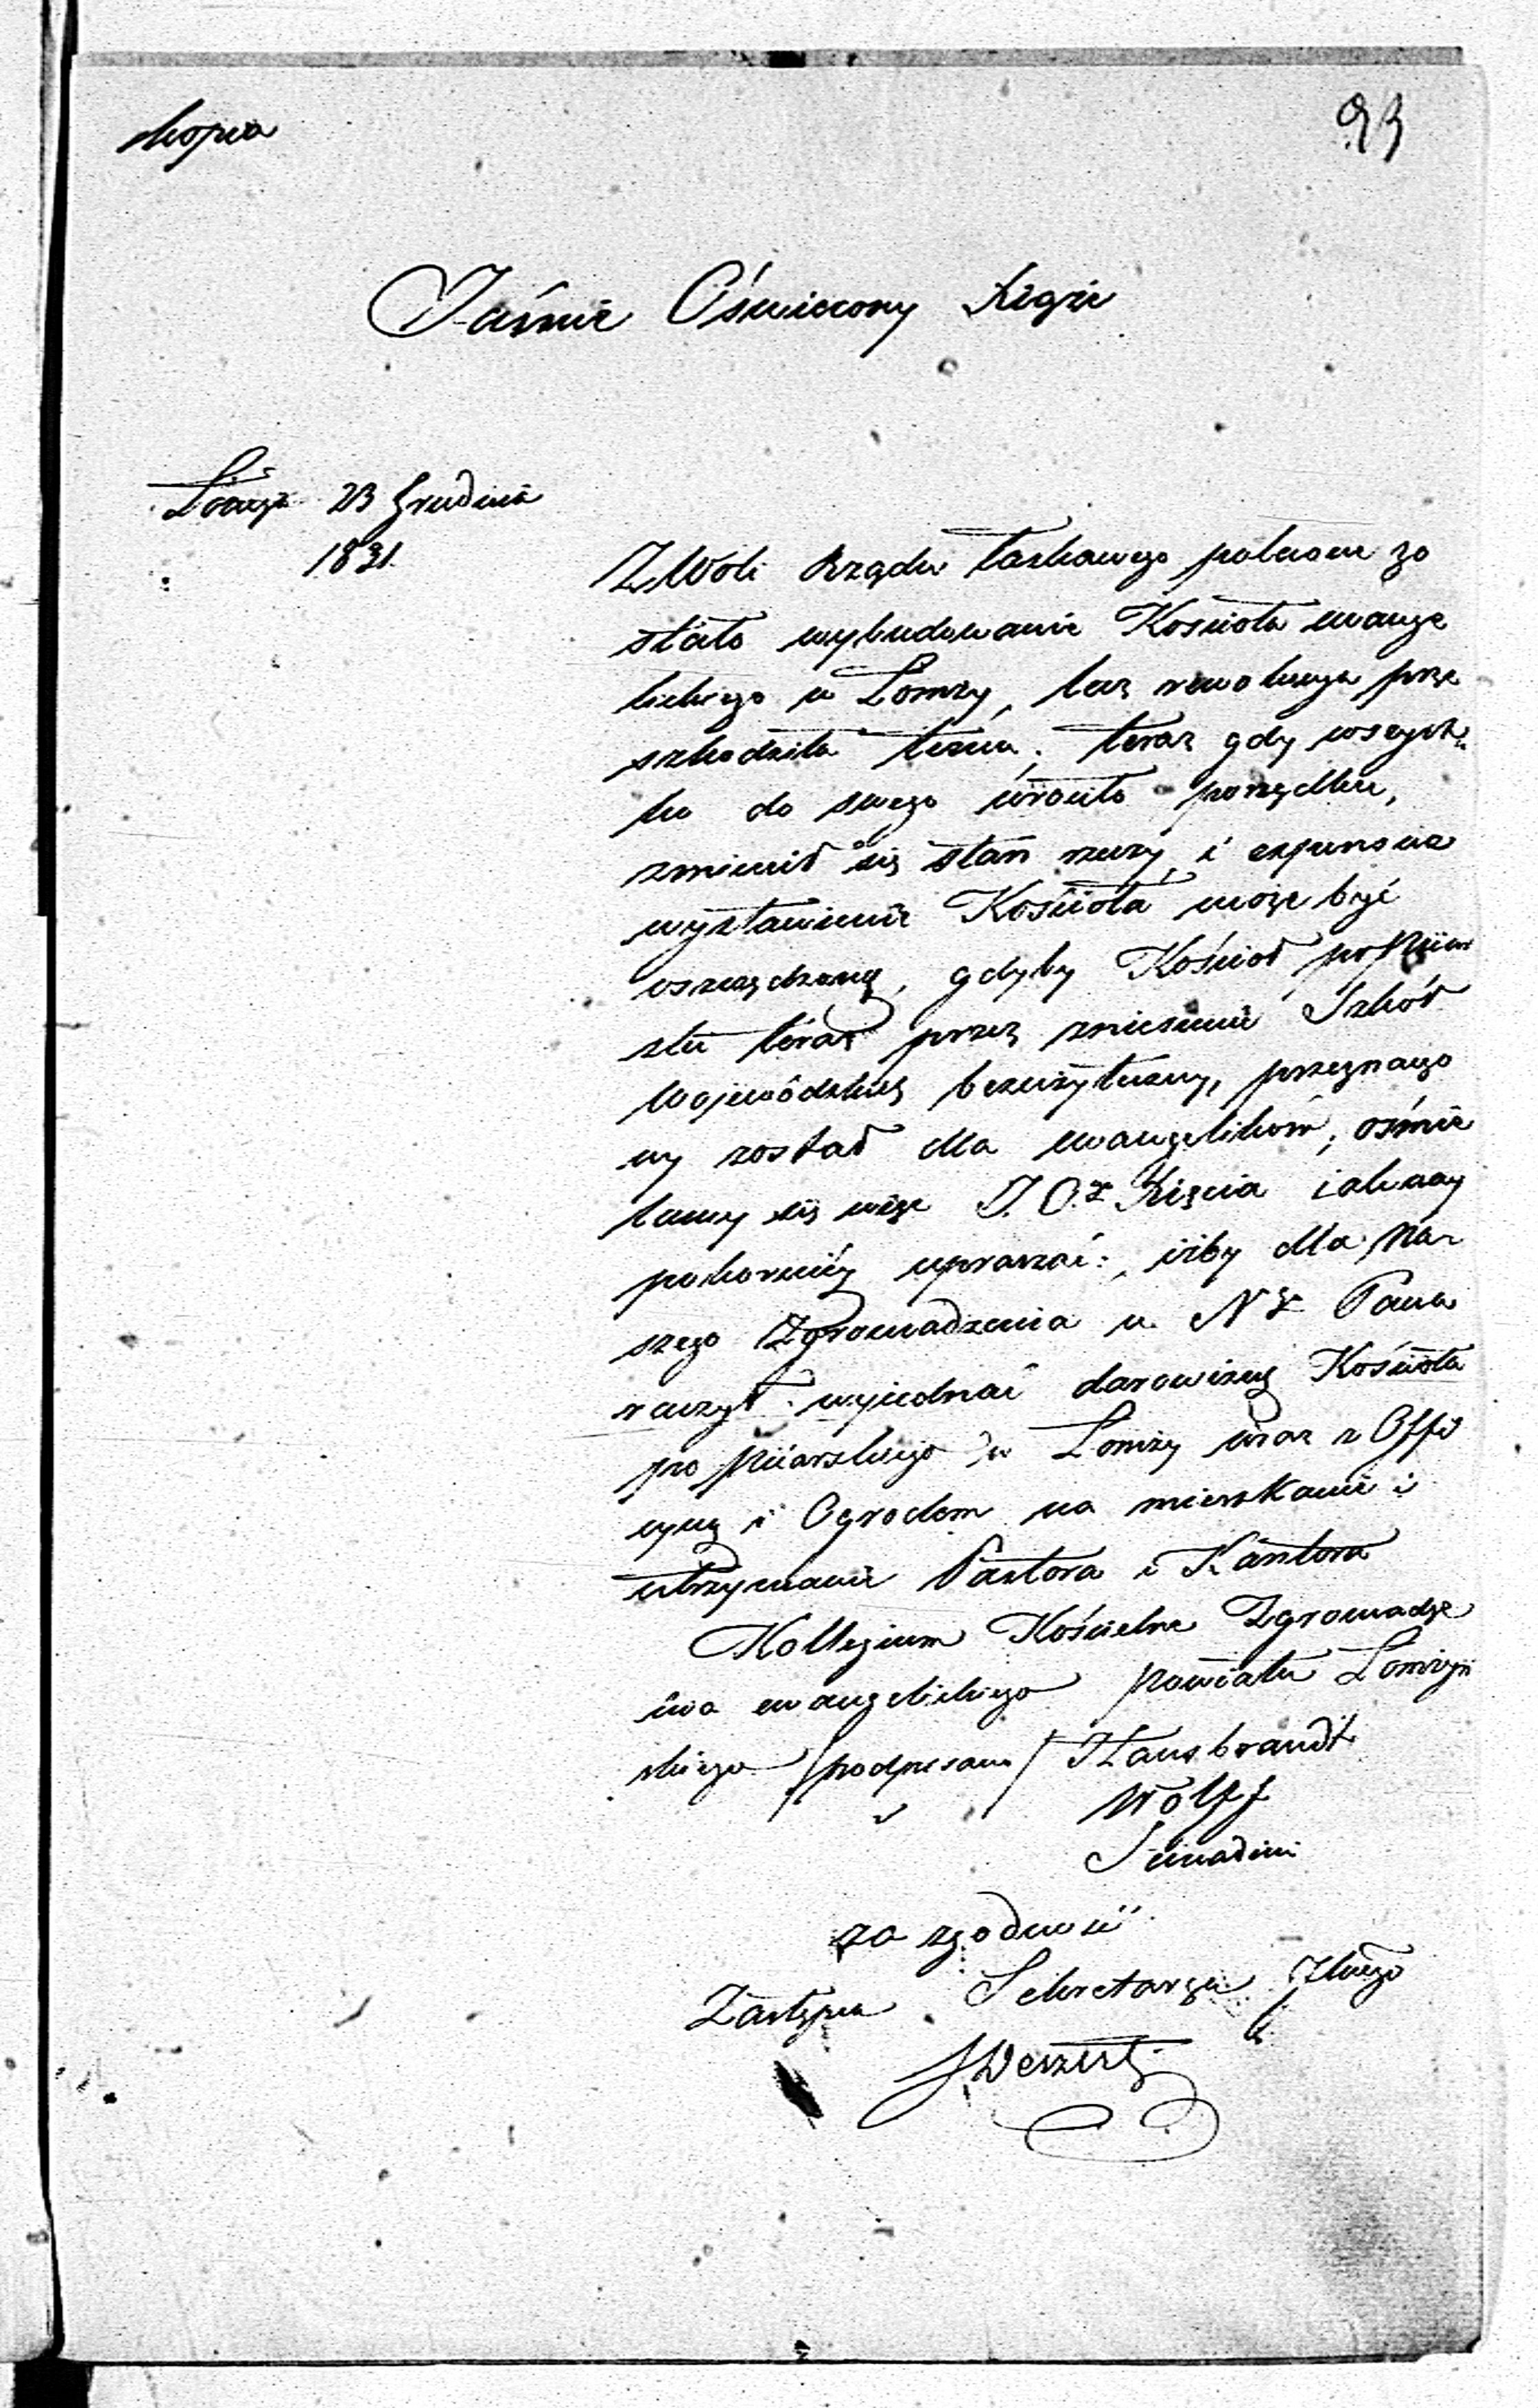 kopia
93
Jaśnie Oświecony Xiąże
Łomża 23 Grudnia
1831.
Z Woli Rządu łaskawego polecone zo
stało wybudowanie Kościoła ewange
lickiego w Łomży, lecz rewolucya prze
szkodziła temu; teraz gdy wszyst-
ko do swego wróciło porządku,
zmienił się stan rzeczy, i expensa na
wystawienie Kościoła może być
oszczędzoną, gdyby Kościół po Piiar
ski teraz przez zniesienie Szkół
Wojewódzkich bezużyteczny, przeznaczo
ny został dla ewangelików; ośmie
lamy się więc J. O. Xięcia jaknay
pokorniéy upraszać, iżby dla Na-
szego Zgromadzenia u N. Pana
raczył wyiednać darowiznę Kościoła
po Piiarskiego w Łomży wraz z Offi
cyną i Ogrodem na mieszkanie i
utrzymanie Pastora i Kantora
Kollegium Kościelne Zgromadze
nia ewangelickiego Powiatu Łomżyń
skiego /podpisano/ Hausbrandt
Wolff
za zgodność
Zastępca Sekretarza